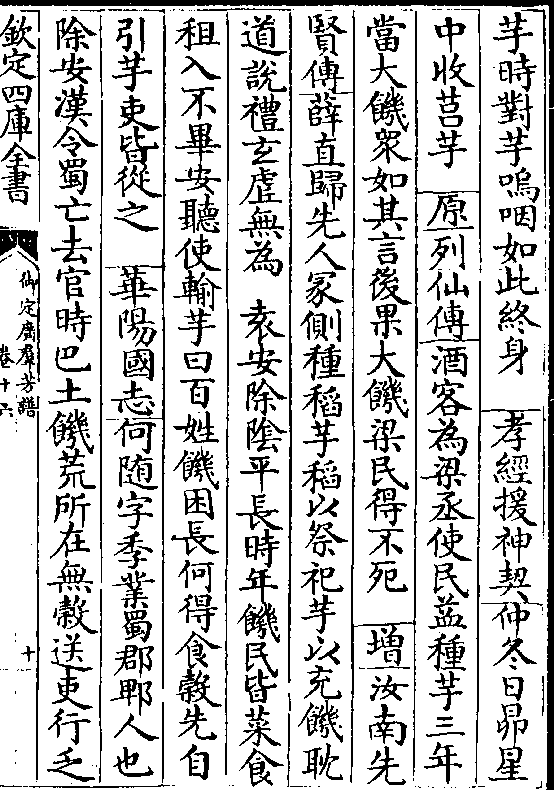 芋時對芋嗚咽如此終身 孝經援神契仲冬日昴星
中收莒芋 原列仙傳酒客為梁丞使民益種芋三年
當大饑衆如其言後果大饑梁民得不死 增汝南先
賢傳薛直歸先人冢側種稻芋稻以祭祀芋以充饑耽
道說禮玄虚無為 袁安除陰平長時年饑民皆菜食
租入不畢安聽使輸芋曰百姓饑困長何得食穀先自
引芋吏皆從之 華陽國志何随字季業蜀郡郫人也
除安漢令蜀亡去官時巴土饑荒所在無穀送吏行乏
欽定四庫全書
御定廣羣芳譜
卷十六
十